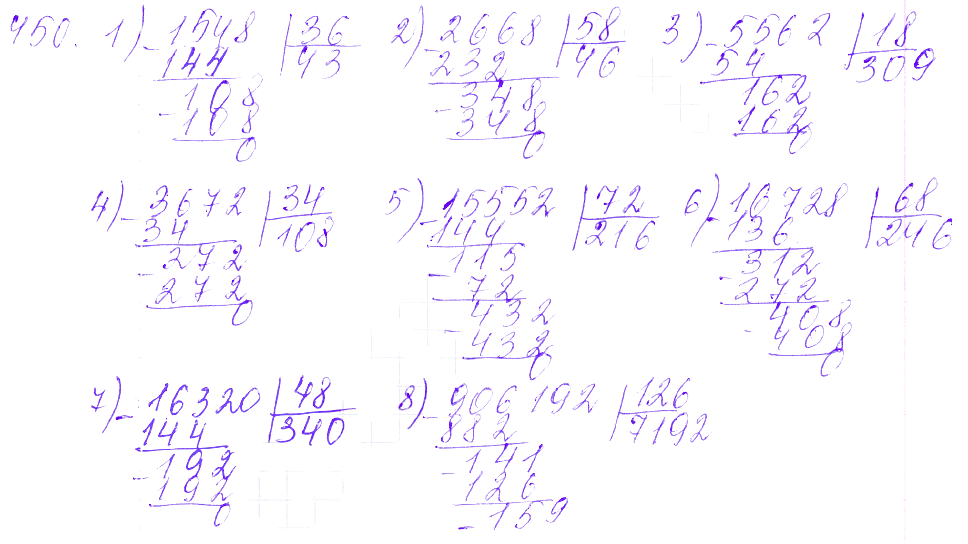 450. 1) - 1548 | 36 2) - 2668 | 58 3) - 5562 | 18
144 43 232 46 54 309
108 348 162
- 108 - 348 162
0 0 0
4) - 3672 | 34 5) - 15552 | 72 6) - 16728 | 68
34 108 144 216 136 246
- 272 115 - 312
272 - 72 272
0 432 - 408
- 432 408
0 0
7) - 16320 | 48 8) - 906192 | 126
144 340 882 7192
- 192 - 141
192 126
0 - 159